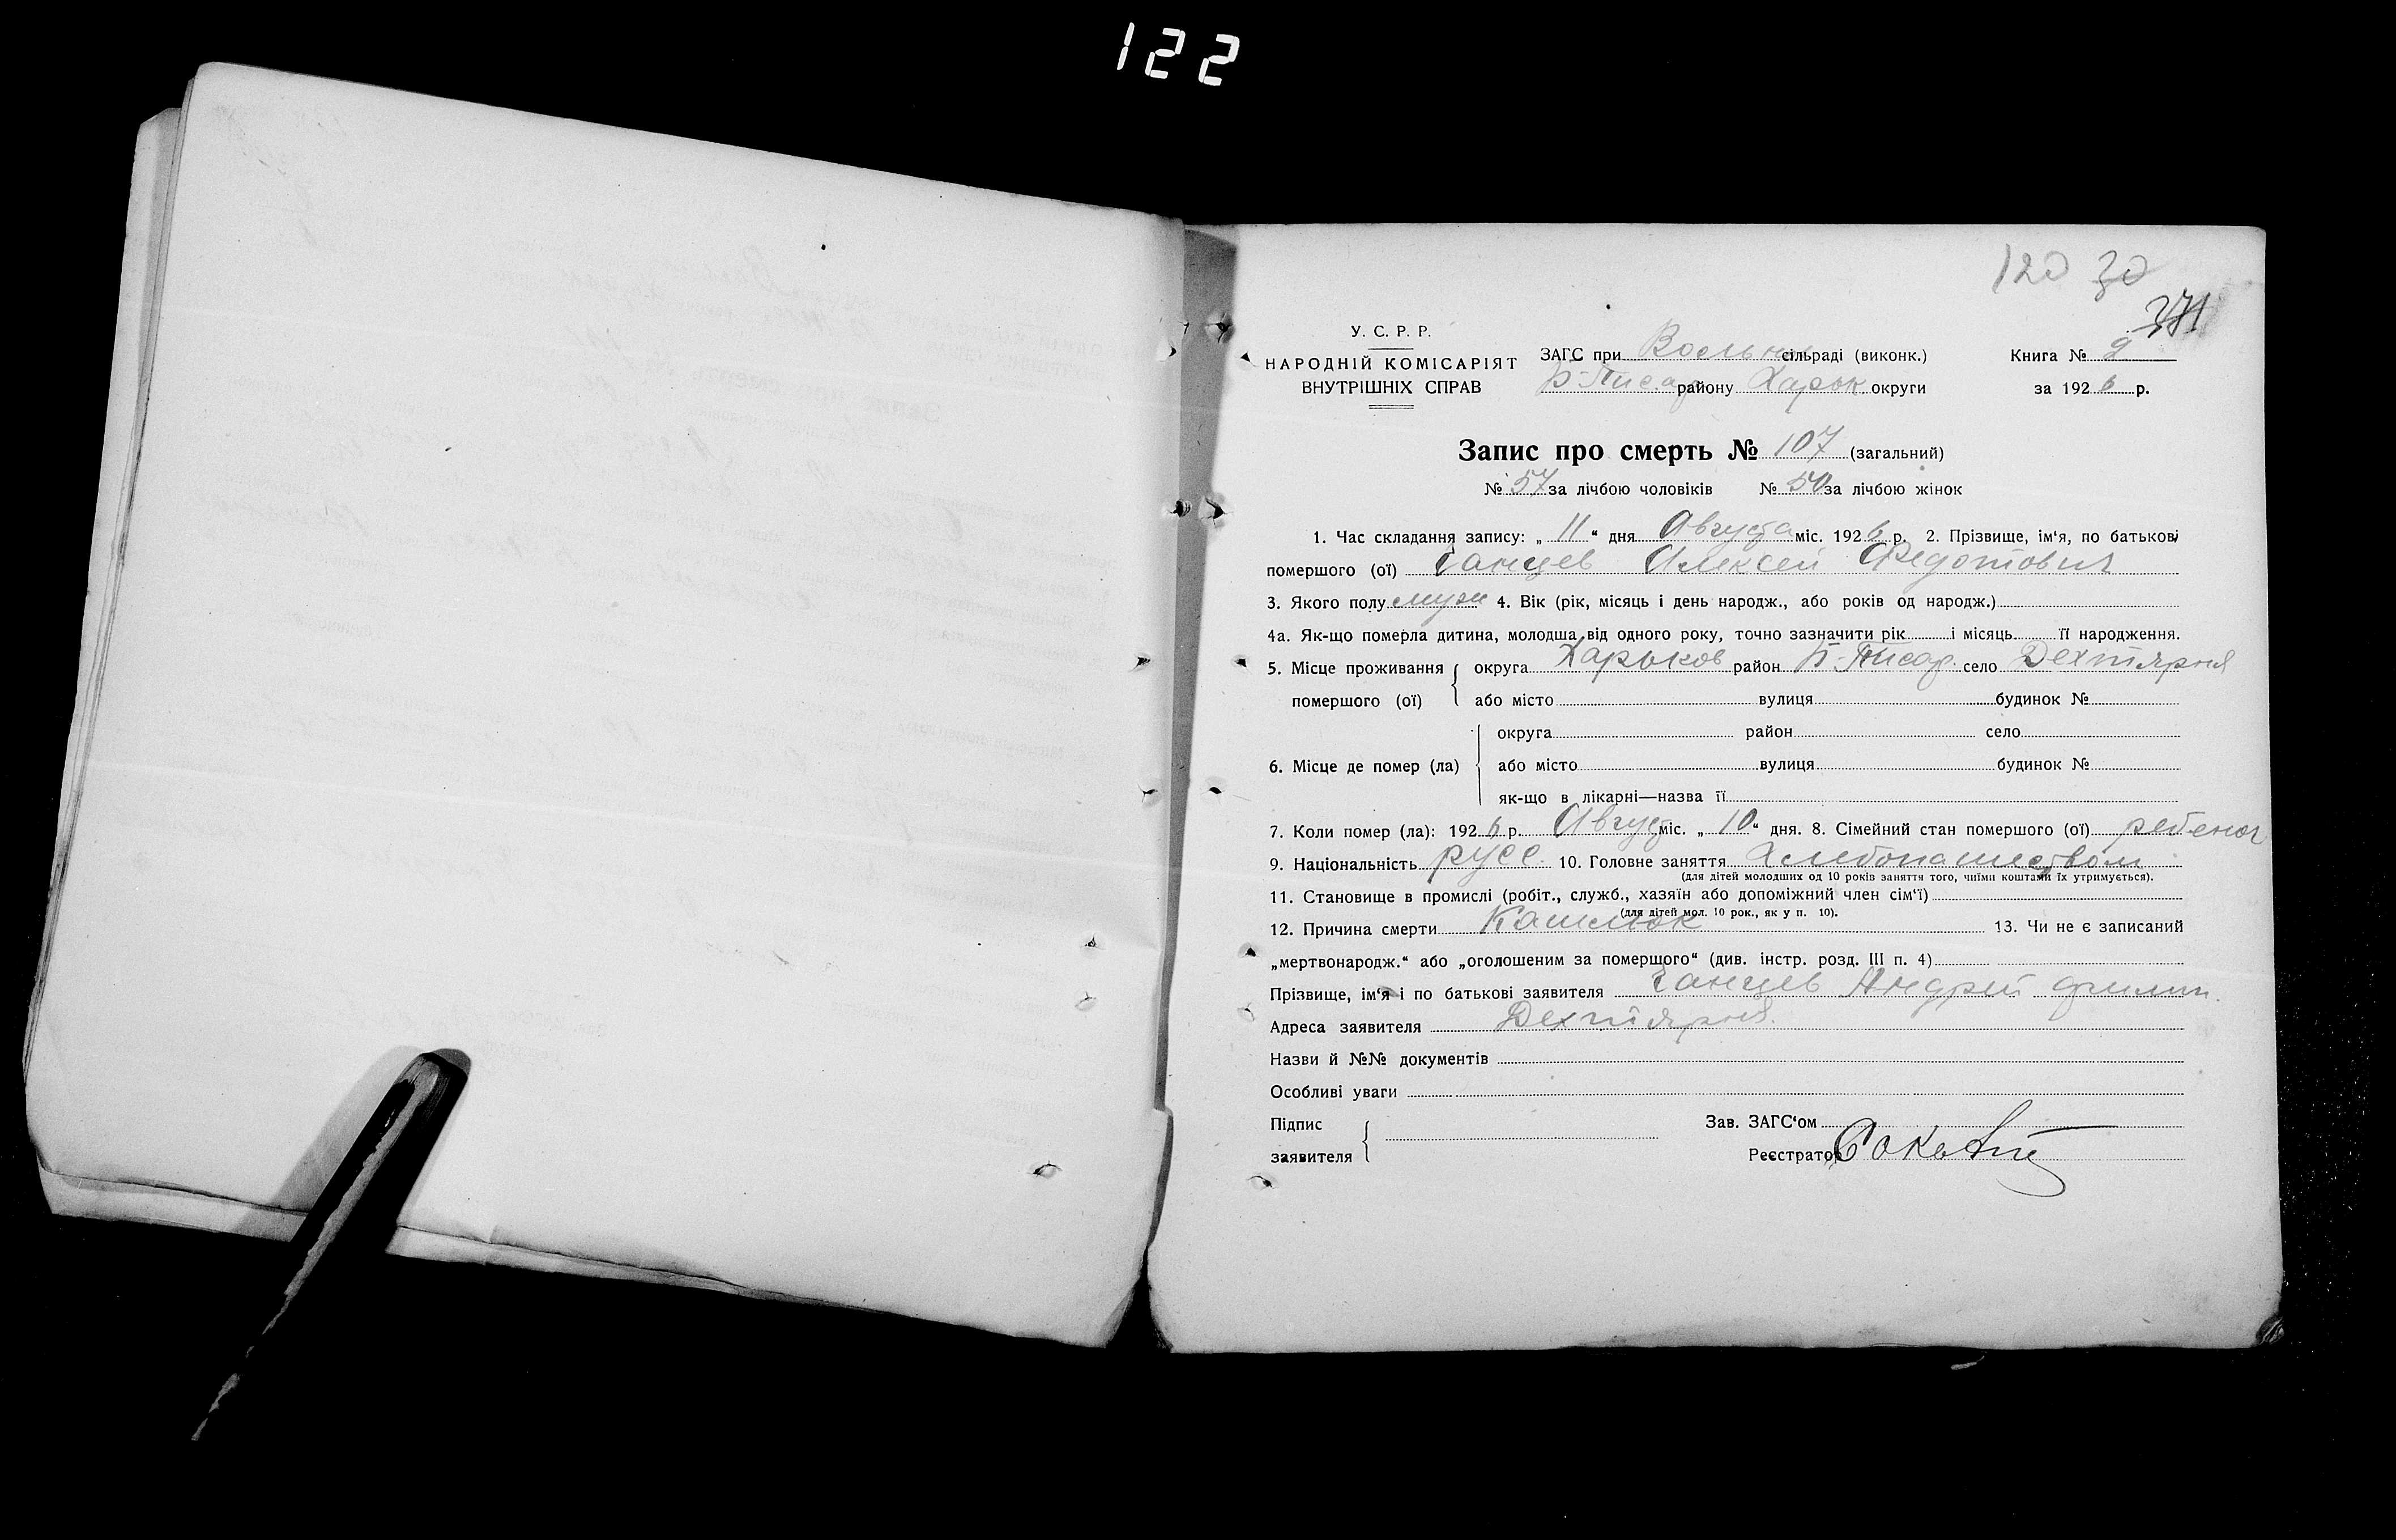 122
120 30
371
У. С. Р. Р.
НАРОДНІЙ КОМІСАРІЯТ
ВНУТРІШНІХ СПРАВ
ЗАГС при Вольн сільраді (виконк.)
Б-Писар району Харьк. округи
Книга № 2
за 1926 р.
Запис про смерть № 107 (загальний)
№ 57 за лічбою чоловіків № 50 за лічбою жінок
1. Час складання запису: „ 11 “ дня Августа міс. 1926 р. 2. Прізвище, ім‘я, по батькові
помершого (ої) Ганцев Алексей Федотович
3. Якого полу муж 4. Вік (рік, місяць і день народж., або років од народж.)
4а. Як-що померла дитина, молодша від одного року, точно зазначити рік і місяць її народження.
5. Місце проживання помершого (ої) округа Харьков район Б-Писар. село Дехтярня
або місто вулиця будинок №
6. Місце де помер (ла) округа район село
або місто вулиця будинок №
як-що в лікарні—назва її
7. Коли помер (ла): 1926 р. Август міс. „ 10 “ дня. 8. Сімейний стан помершого (ої) ребенок
9. Національність русс. 10. Головне заняття Хлебопашеством
(для дітей молодших од 10 років заняття того, чиїми коштами їх утримується).
11. Становище в промислі (робіт., служб., хазяїн або допоміжний член сім‘ї)
(для дітей мол. 10 рок., як у п. 10).
12. Причина смерти Кашлюк 13. Чи не є записаний
„мертвонародж.“ або „оголошеним за помершого“ (див. інстр. розд. III п. 4)
Прізвище, ім‘я і по батькові заявителя Ганцев Андрей Филип.
Адреса заявителя Дехтярня.
Назви й №№ документів
Особливі уваги
Підпис
заявителя
Зав. ЗАГС‘ом
Реєстратор